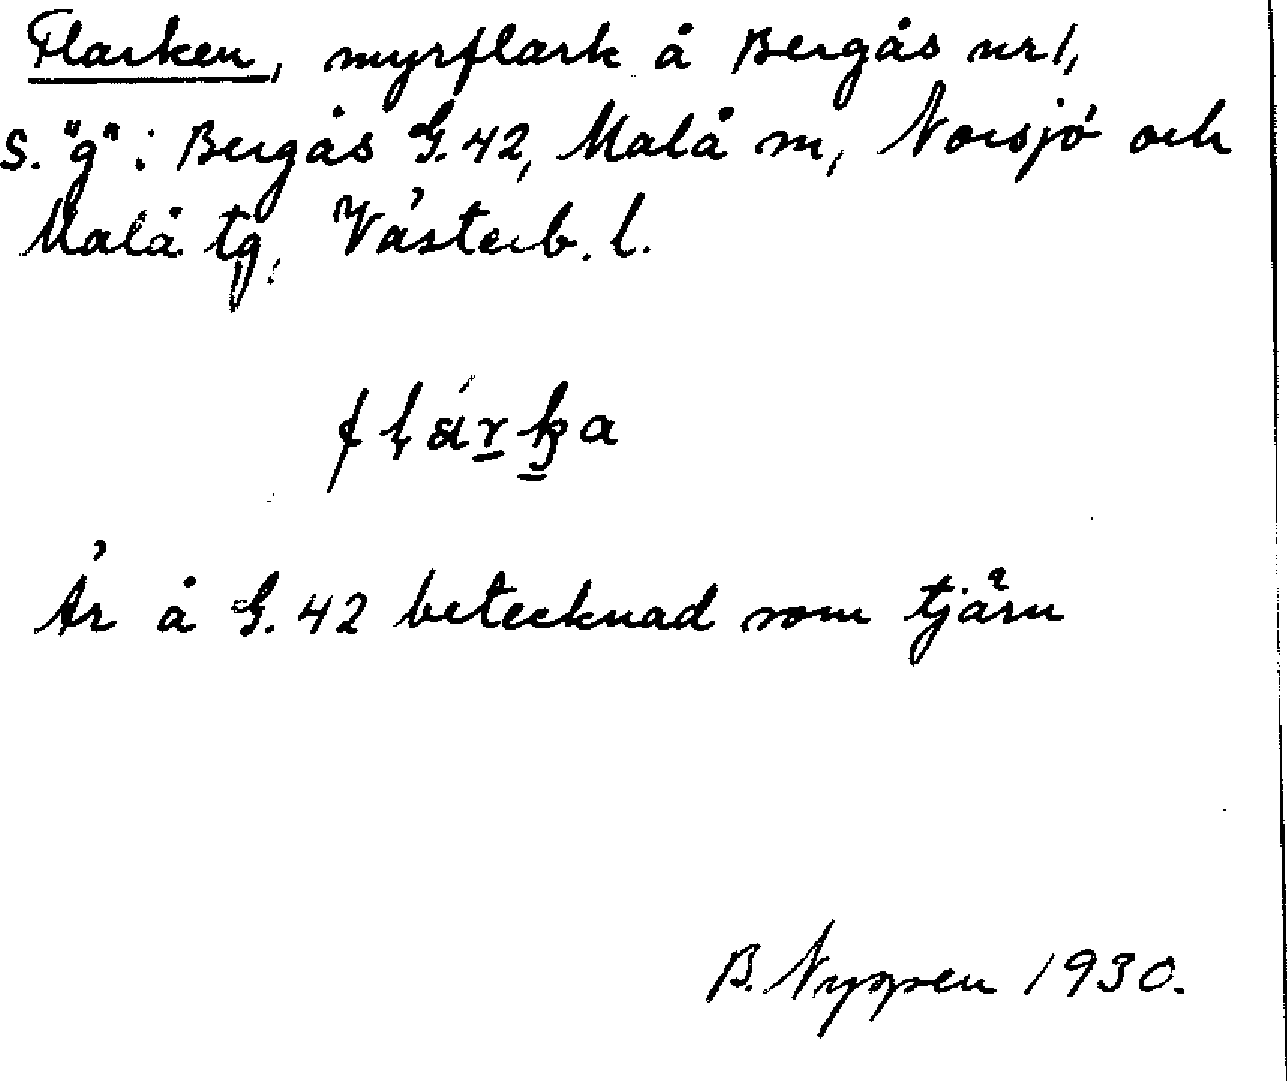 Flarken, myrflark å Bergås nr 1,
s. "g": Bergås G. 42, Malå sn, Norsjö och
Malå tg, Västerb. l.
flárka
Är å G. 42 betecknad som tjärn
B. Nyppen 1930.